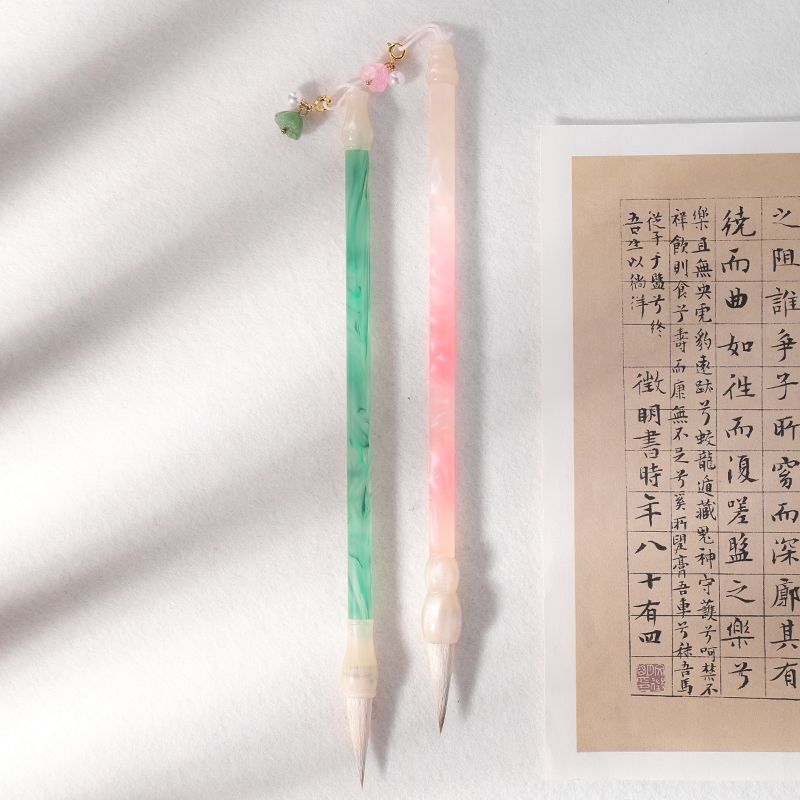 之阻誰爭子所窈而深廓其有
繞而曲如往而復嗟盤之樂兮
樂且無央虎豹遠跡兮蛟龍遁藏鬼神守護兮呵禁不
祥飲則食兮壽而康無不足兮奚所望膏吾車兮秣吾馬
從子于盤兮終
吾生以徜徉
徵明書時年八十有四